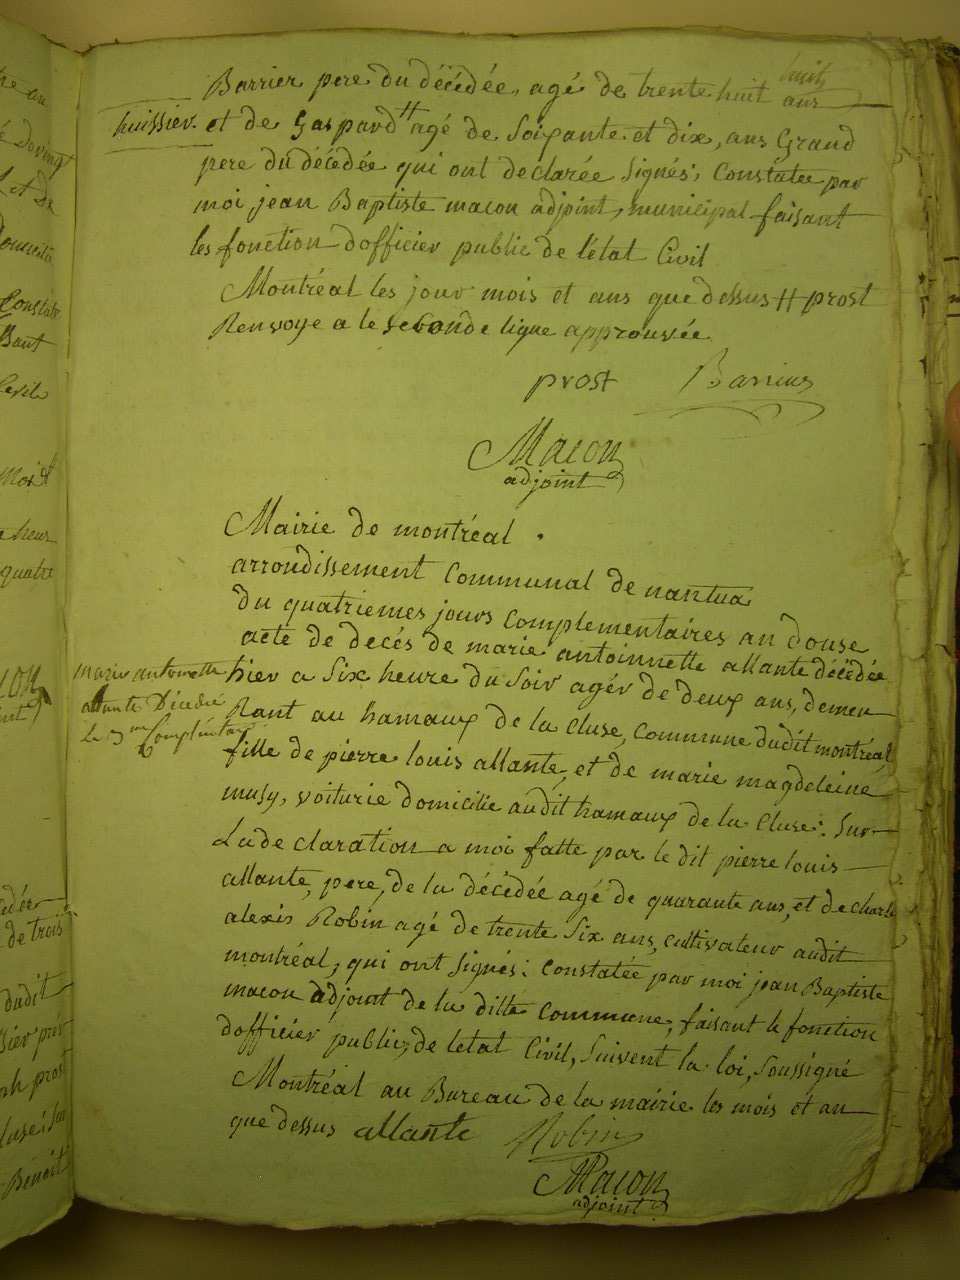 Barrier pere du décédée, agé de trente huit ans
huissier. et de Gaspard # agé de Soixante et dix, ans Grand
pere du décédée qui ont declarée Signés; Constatée par
moi jean Baptiste macon adjoint, municipal faisant
les fonction dofficier public de létat Civil
Montréal les jour mois et ans que dessus # prost
Renvoye a le seconde ligne approuvée
prost Barrier
Macon
adjoint
Mairie de montréal
arrondissement Communal de nantua
du quatriemes jours Complementaires an douse
acte de decés de marie antoinnette allante décédée
hier a Six heure du Soir agér de deux ans, demeu
Rant au hamaux de la Cluse, Commune dudit montréal,
fille de pierre louis allante, et de marie magdeleine
musy, voiturie domicilie audit hamaux de la Cluse: Sur
La de claration a moi fatte par le dit pierre louis
allante, pere, de la décédée agé de quarante ans, et de charle
alexis Robin agé de trente Six ans, cultivateur audit
montréal, qui ont Signés: Constatée par moi jean Baptiste
macon adjoint de la ditte Commune, faisant le fonction
dofficier public, de letat Civil, Suivent la loi, Soussigné
Montréal au Bureau de la mairie les mois et an
que dessus allante Robin
Macon
adjoint
marie antoinette
allante Décédée
Le 3me Complémtaire